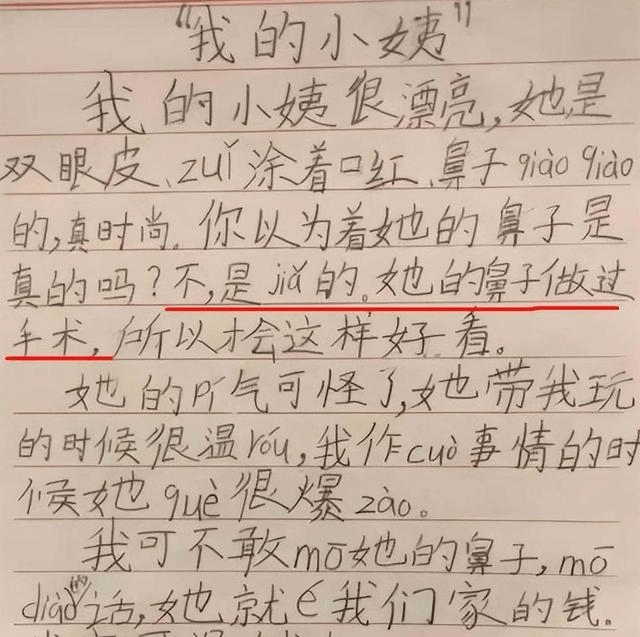 “我的小姨”
我的小姨很漂亮,她是
双眼皮、zuǐ涂着口红、鼻子qiào qiào
的,真时尚。你以为着她的鼻子是
真的吗?不,是jiǎ的。她的鼻子做过
手术,所以才会这样好看。
她的pí气可怪了,她带我玩
的时候很温róu,我作cuò事情的时
候她què很爆zào。
我可不敢mō她的鼻子,mō
diào的话,她就é我们家的钱。